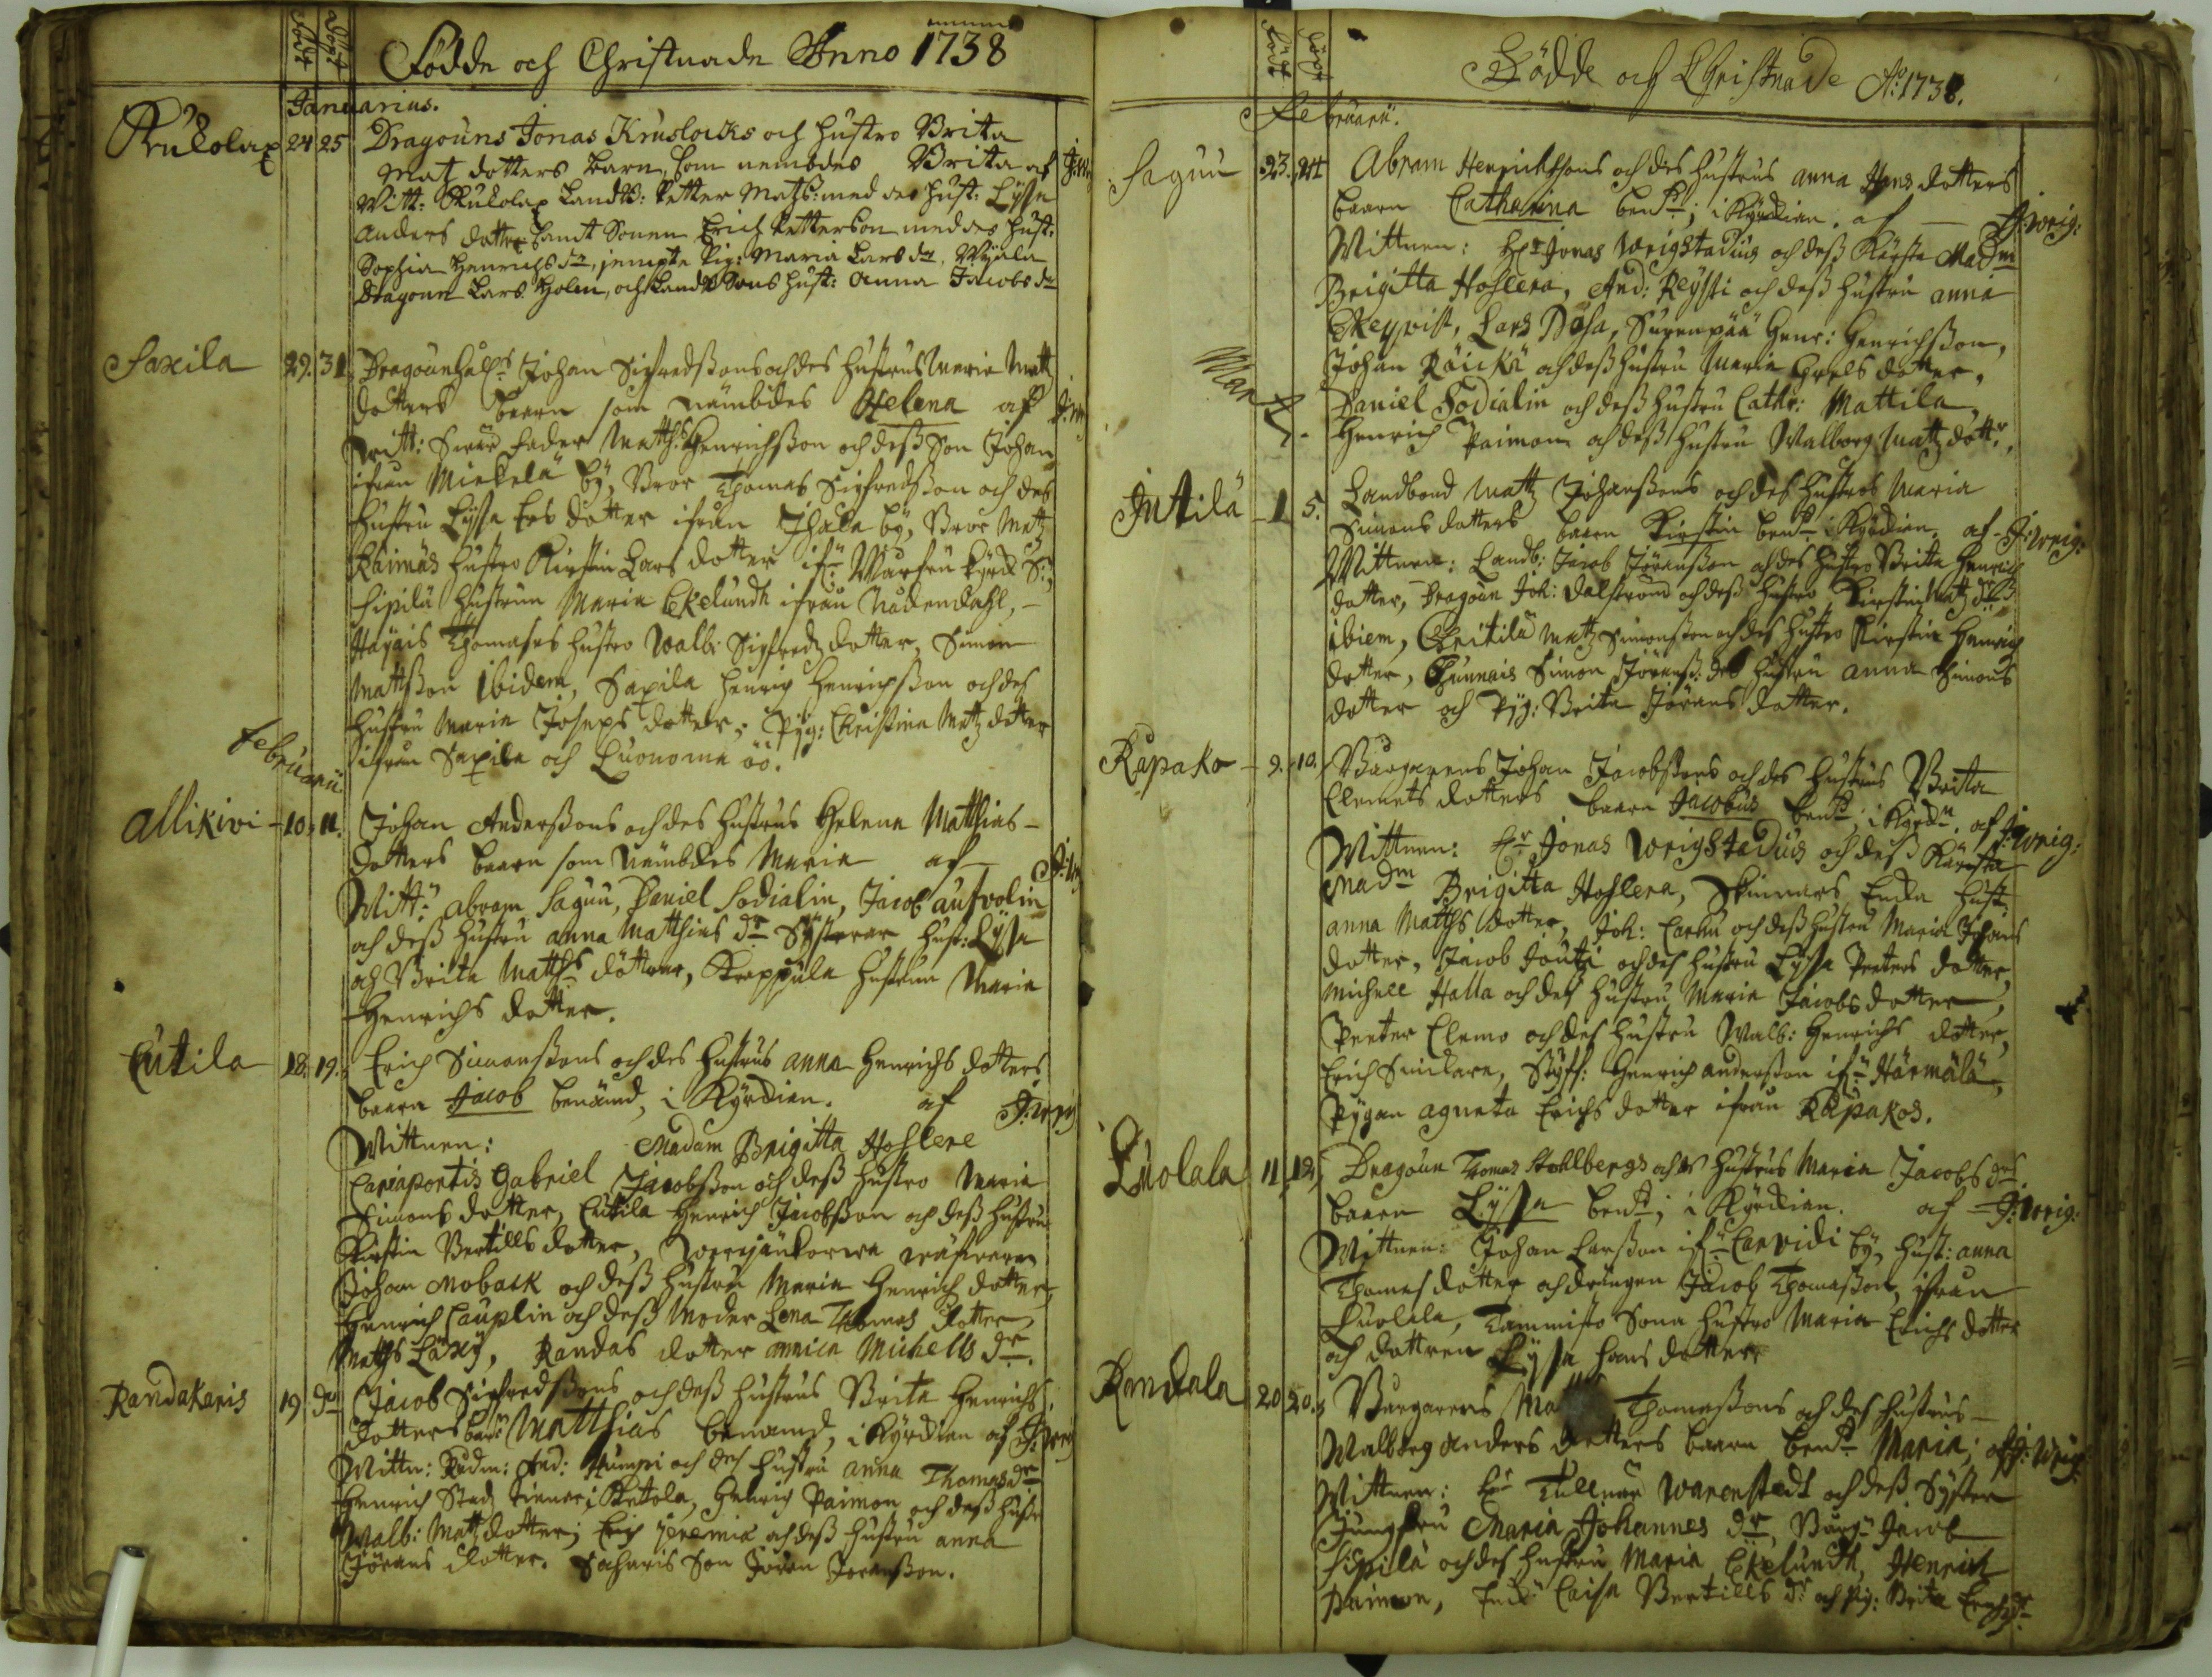 Födt
Döpt
Födde och Christnade Anno 1738
Januarius.
Kukolax 24 25 Dragouns Jonas Kruslocks och hustro Brita
Matz dotters barn, som nembdes Brita af J:W:
Witt: Kukolax Landb: Petter Matss: med des hust: Lijsa
Anders dotter samt Sonen Erich Petterson med des hust:
Sophia Henrichs dr, jempte Pig: Maria Lars dr, Wijala
Dragoun Lars Holm, och Landb Sons hust: Anna Jacobs dr
Saxila 29. 31. Dragoun Johan Sigfredssons och des hustrus Maria Matz
dotters baarn som nämbdes Helena af J:W
Witt: Swär fader Matths Henrichsson och dess Son Johan
ifrån Miekelä bÿ, Bror Thomas Sigfredsson och des
hustru Lijsa Ers dotter ifrån Ihala bÿ, Bror Matz
Raimäs hustro Kirstin Lars dotter
Sipilä hustrun Maria Ekelundh ifrån Nådendahl, -
Hayais Thomases hustro Walb: Sigfredz dotter, Simon
Mattsson Ibidem, Saxila Henrich Henrichsson och des
hustru Maria Josephs dotter; Pÿg: Christina Matz dotter
ifrån Saxila och Luonoma öö.
Februarii
Allikivi - 10. 11. Johan Anderssons och des hustrus Helena Matthias-
dotters baarn som nämbdes Maria af J:W
Witt: Abram Saguu, Daniel Sodialin, Jacob
och dess hustru Anna Matthias dr Systrar hust: Lijsa
och Brita Matths döttrar, Keppila hustrun Maria
Henrichs dotter.
Eutila 18. 19. Erich Simonssons och des hustrus Anna Henrichs dotters
baarn Jacob benämd, i Kÿrckian. af J:Wrig
Wittnen: Madam Brigitta Hoslera
Cariaportis Gabriel Jacobsson och dess hustro Maria
Simons dotter, Eutila Henrich Jacobsson och dess hustru
Kirstin Bertills dotter,
Johan Moback och dess hustru Maria Henrich dotter,
Henrich Cauplin och dess Moder Lena Thomas dotter,
Matths Läxÿ, Randas dotter Annica Michells dr.
Randakaris 19 do Jacob Sigfredssons och dess hustrus Brita Henrichs
dotters barn Matthias benämd, i Kÿrckian af J:Wrig
Wittn: And: Humpi och des hustru Anna Thomas dr
Henrich Ketola, Henrich Paimon och dess hustr
Walb: Matz dotter; Erich Jeremia och dess hustru Anna
Jörans dotter. Sacharis Son Jören Joransson.
Födt
Döpt
Födde och Christnade Ao: 1738.
Februarii.
Saguu 23. 24 Abram Henrichssons och des hustrus Anna Hans dotters
baarn Catharina bend; i Kÿrckian. af J:Wrig:
Wittnen: Hr Jonas Wrigstadius och dess Kärsta Madm
Brigitta Hoslera, And: Reijsti och dess hustru Anna
Ekeqvist, Lars Döfa, Surenpää Henr: Henrichsson,
Johan Räickä och dess hustru Maria Grels dotter,
Daniel Sodialin och dess hustru Cathr: Mattila,
Henrich Paimon och dess hustru Walborg Matz dottr.
Martz.
Intilä 1 5. Landbond Matz Johanssons och des hustros Maria
Simons dotters baarn Kirstin bend i Kÿrckian. af J:Wrig:
Wittnen: Landb: Jacob Jöransson och des hustro Brita Henrich
dotter, Dragoun Joh: Dalström och dess hustro Kirstin Matz dr
ibiem, Critila Matz Simonsson och des hustro Kirstin Henrich
dotter, Chunnais Simon Jöranss: des hustru Anna Simons
dotter och Pÿg: Brita Jörans dotter.
Rapako - 9. 10. Burgarens Johan Jacobssons och des hustrus Britta
Clemets dotters baarn Jacobus bend; i Kÿrckn. af J:Wrig:
Wittnen: Hr Jonas Wrigstadius och dess Kärsta
Madm Brigitta Hoslera, Skinnars Enka hust:
Anna Matths dotter, Joh: Carhu och dess hustru Maria Johans
dotter, Jacob Joutzi och des hustru Lijsa Peeters dotter,
Michell Halla och des hustru Maria Jacobs dotter,
Peeter Clemo och des hustru Walb: Henrichs dotter,
Erich Snickare, Styff: Henrich Andersson ifr: Härmälä,
Pÿgan Agneta Erichs dotter ifrån Rapakos.
Luolala 11. 12. Dragoun Thomas Stollbergs och des hustrus Maria Jacobs drs
baarn Lijsa bend; i Kÿrckian. af J:Wrig:
Wittnen: Johan Larsson ifr: Carvidi bÿ, hust: Anna
Thomas dotter och drängen Jacob Thomasson, ifrån
Luolala, Tammisto Sons hustro Maria Erichs dotter
och dottren Lijsa Hans dotter.
Randala 20 20. Burgarens Ma Thomassons och des hustrus -
Walborg Anders dotters baarn bend Maria; af J:Wrig:
Wittnen: Hr Tullnär Warenstedt och dess Syster
Jungfru Maria Johannes dr, Burg: Jacob
Sipilä och des hustru Maria Ekelundh, Henrich
Paimon, Caisa Bertills dr och Pig: Brita Erichs dr